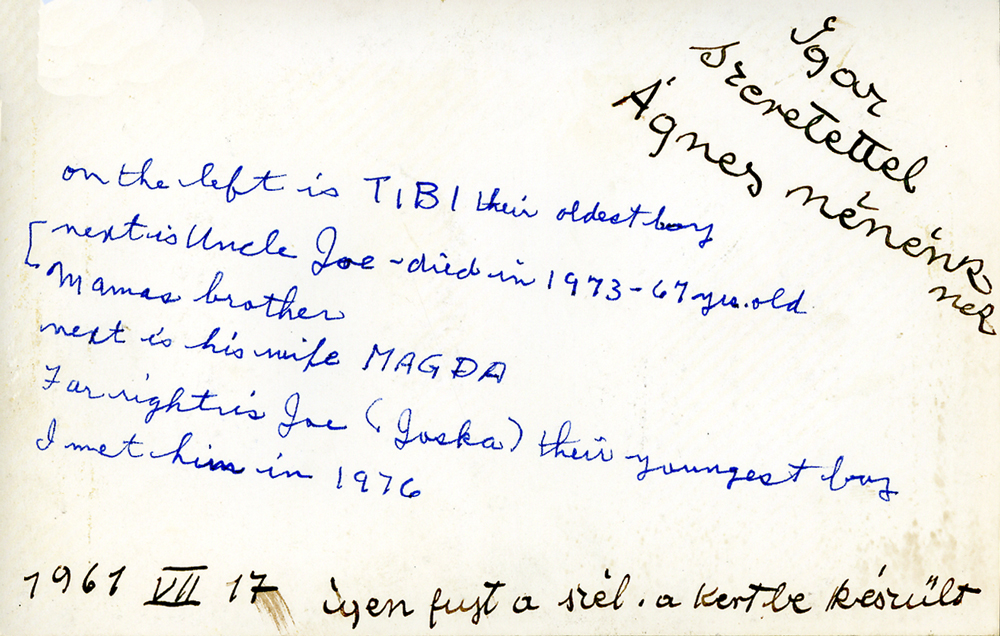 Igaz
szeretettel
Ágnes nénénk
nek
on the left is TIBI their oldest boy
next is Uncle Joe - died in 1973 - 67 yrs. old
Mamas brother
next is his wife MAGDA
Far right is Joe (Joska) their youngest boy
I met him in 1976
1961 VII 17 igen fujt a szél. a kertbe készült